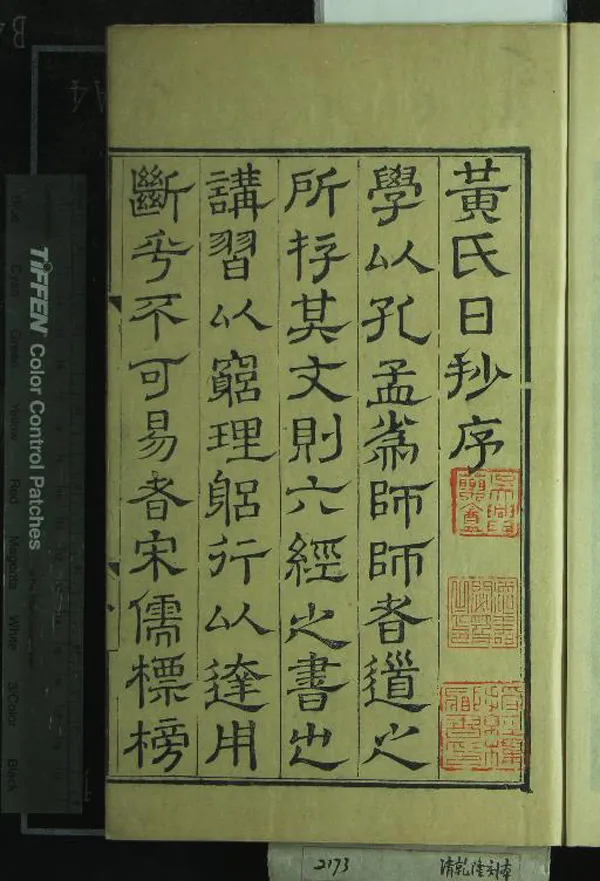 黃氏日抄序
學以孔孟爲師師者道之
所存其文則六經之書也
講習以窮理躬行以達用
斷乎不可易者宋儒標榜
TIFFEN Color Control Patches
Blue
Cyan
Green
Yellow
Red
Magenta
White
3/Color
Black
2173
清乾隆刻本